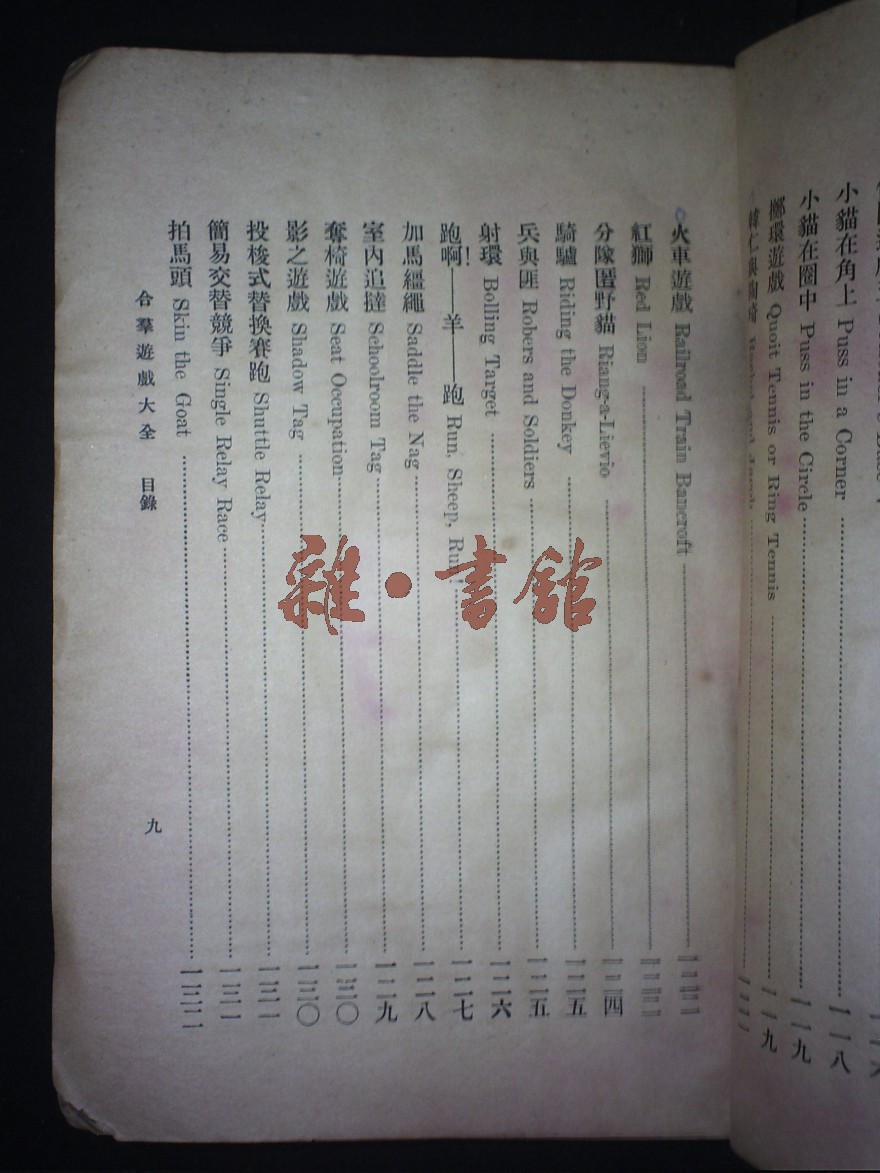 小貓在角上 Puss in a Corner 一一八
小貓在圈中 Puss in the Circle 一一九
擲環遊戲 Quoit Tennis or Ring Tennis 一一九
火車遊戲 Railroad Train Bancroft
紅獅 Red Lion
分隊匿野貓 Riang-a-Lievio 一二四
騎驢 Riding the Donkey 一二五
兵與匪 Robers and Soldiers 一二五
射環 Bolling Target 一二六
跑啊!——羊——跑 Run, Sheep, Run! 一二七
加馬繮繩 Saddle the Nag 一二八
室內追撻 Schoolroom Tag 一二九
奪椅遊戲 Seat Occupation 一三〇
影之遊戲 Shadow Tag 一三〇
投梭式替換賽跑 Shuttle Relay
簡易交替競爭 Single Relay Race
拍馬頭 Skin the Goat
合羣遊戲大全 目錄 九
雜·書館